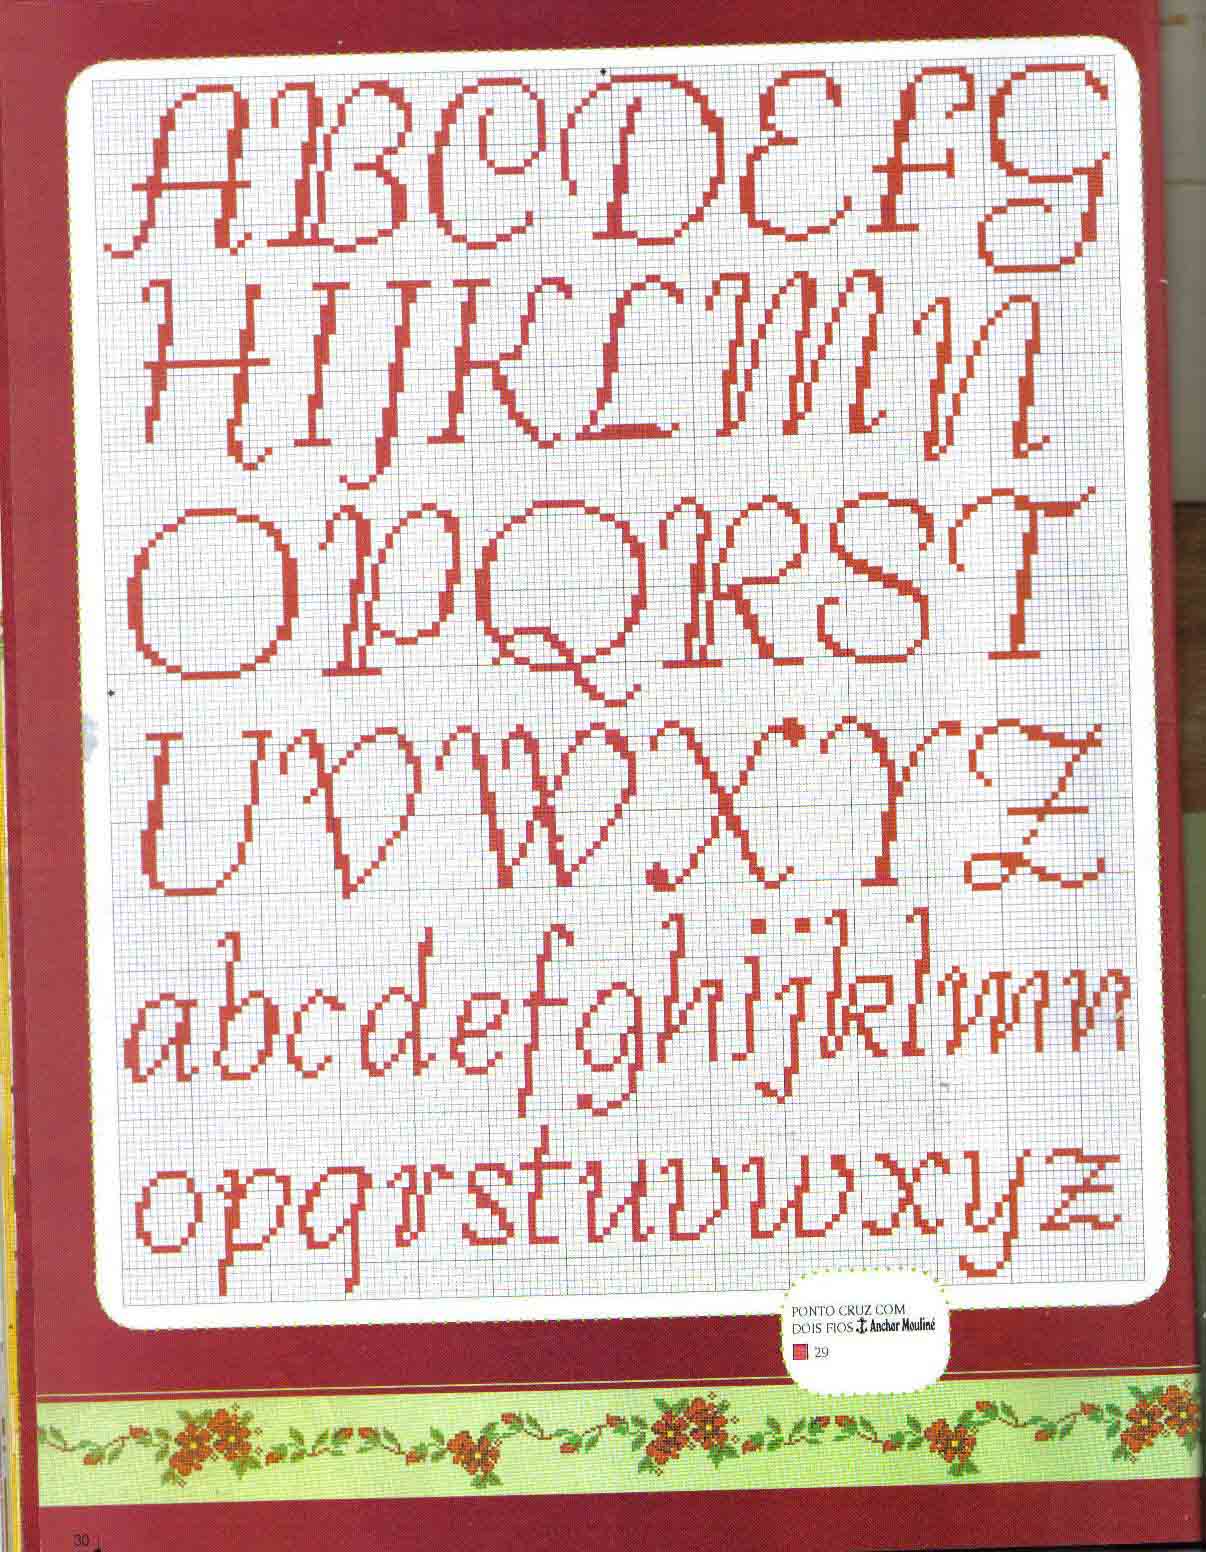 A B C D E F G
H I J K L M N
O P Q R S T
U V W X Y Z
a b c d e f g h i j k l m n
o p q r s t u v w x y z
PONTO CRUZ COM
DOIS FIOS Anchor Mouliné
29
30